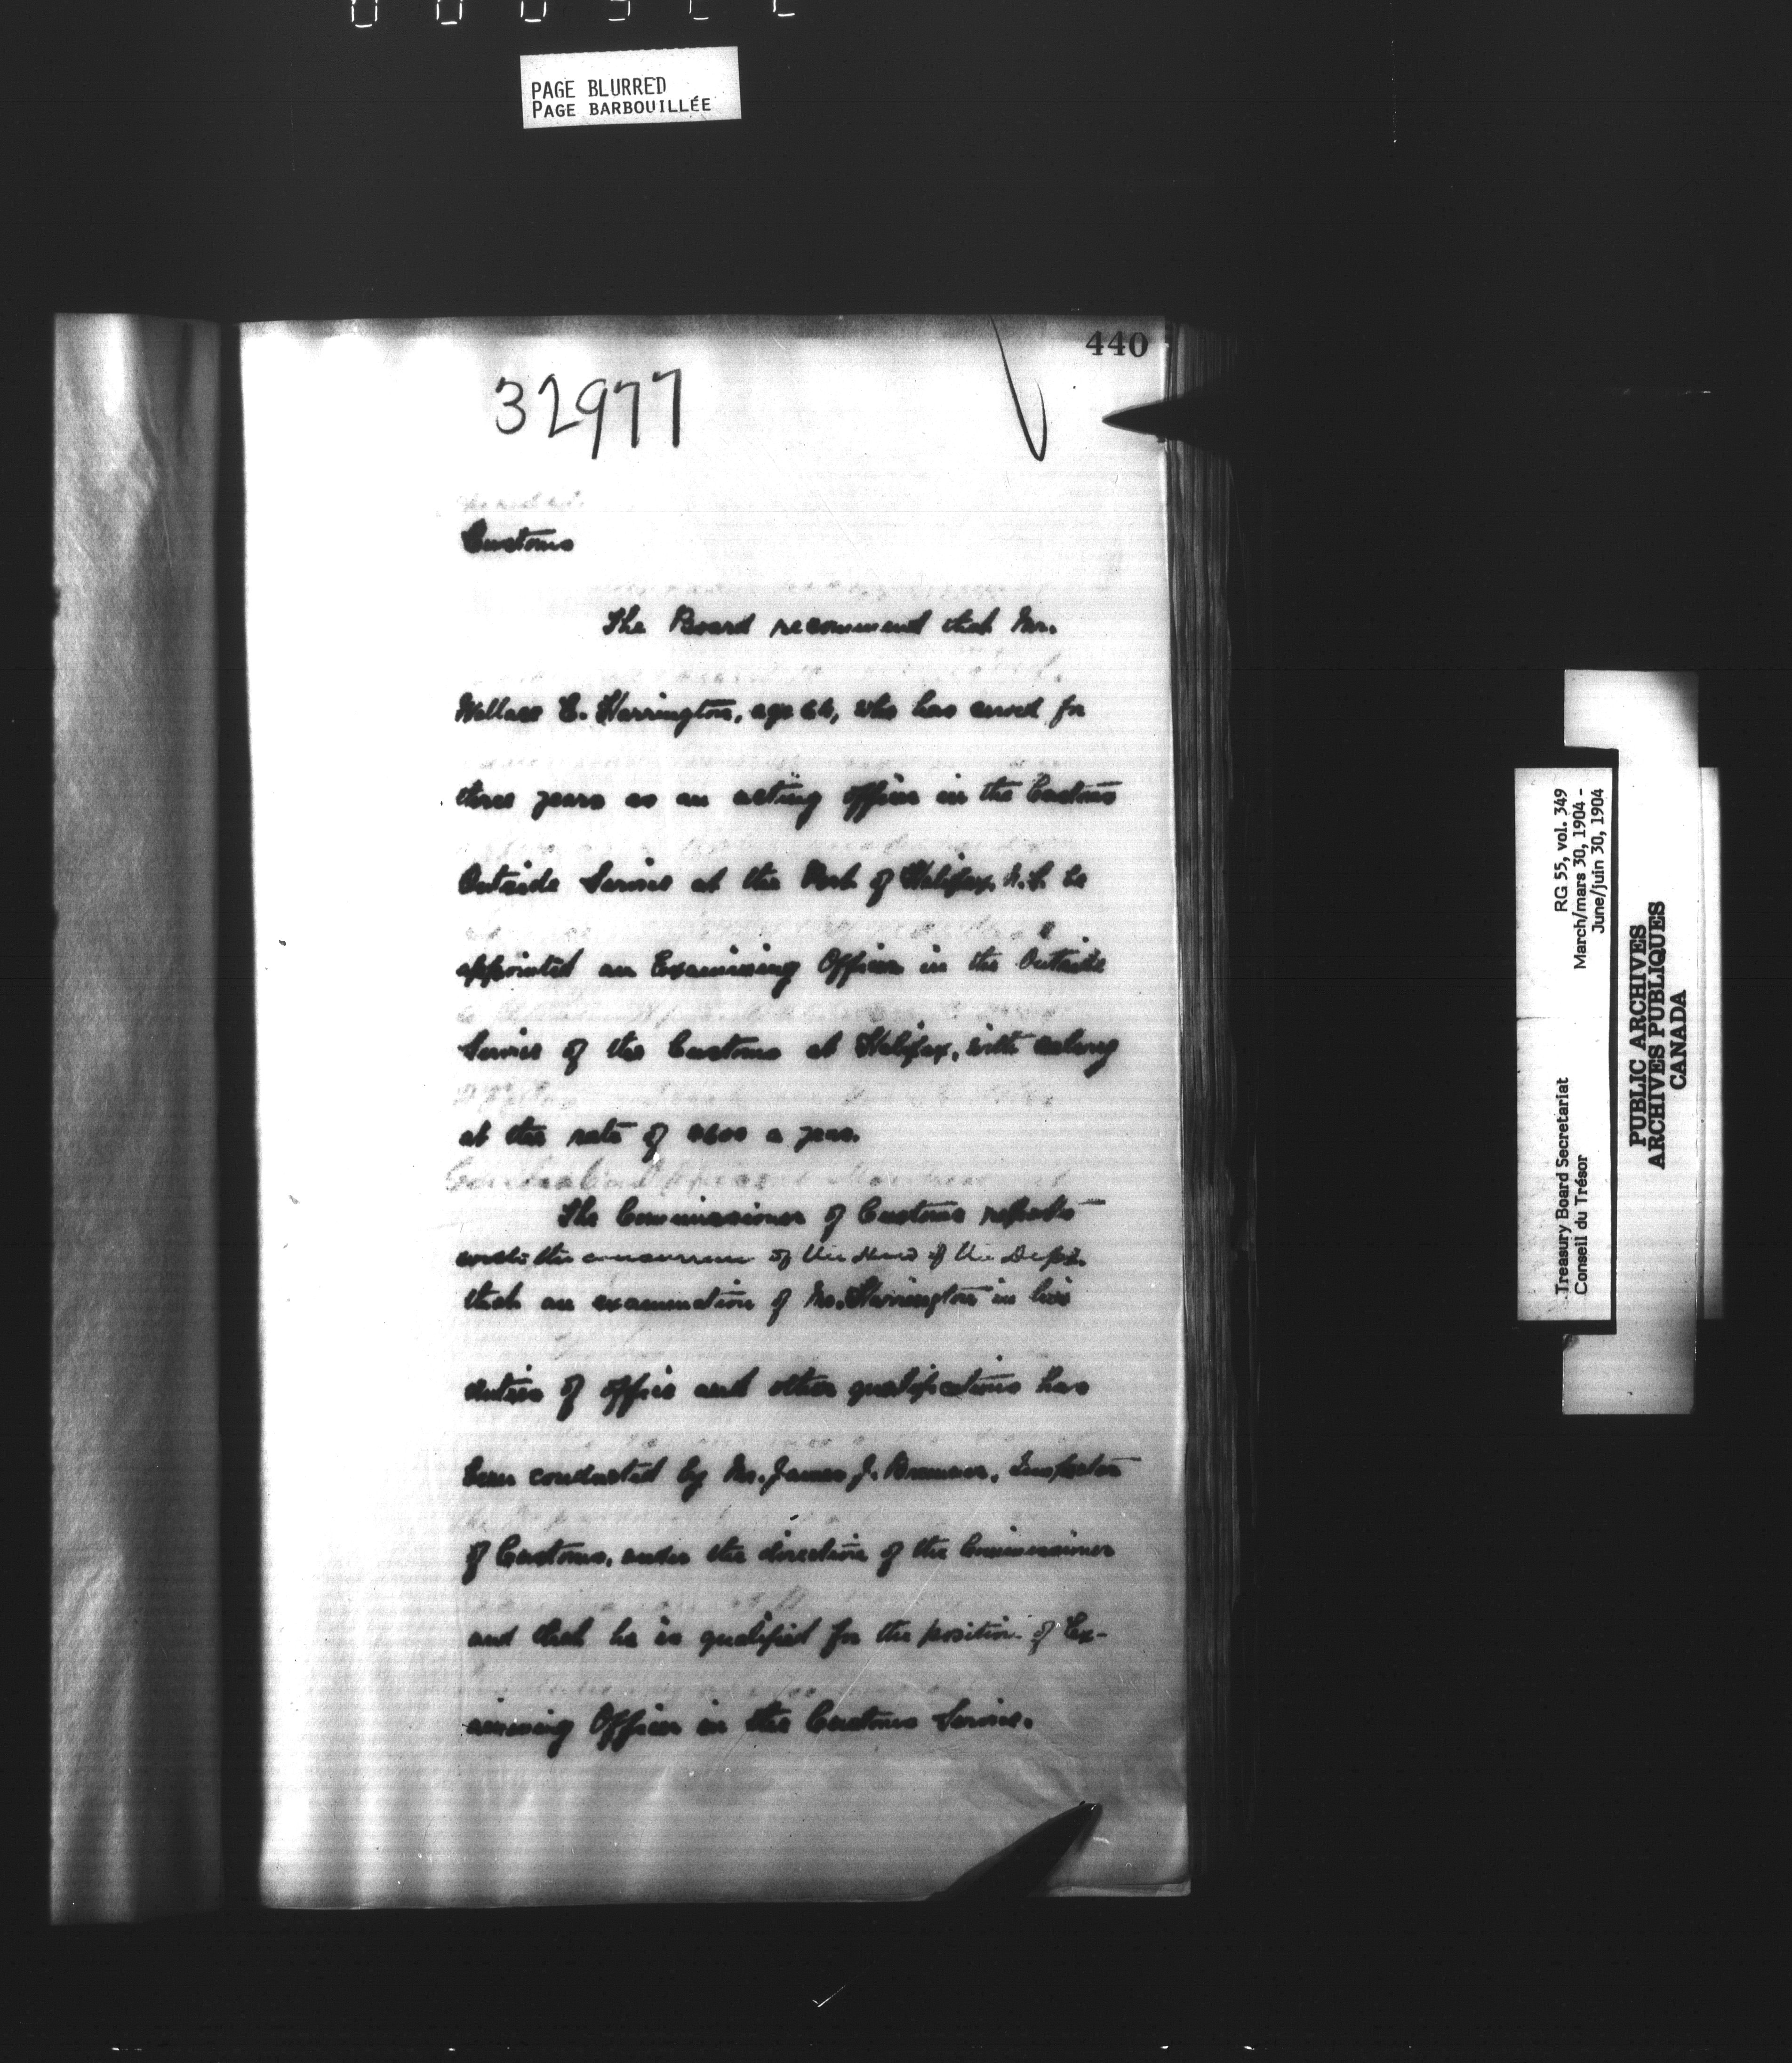 PAGE BLURRED
PAGE BARBOUILLÉE
440
32977
Customs
The Board recommend that Mr.
Wallace E. Harrington, age, who has served for
three years as an acting officer in the Customs
Outside Service at the Port of Halifax, N.S. be
appointed an Examining Officer in the Outside
Service of the Customs at Halifax, with salary
at the rate of $600 a year.
The Commissioner of Customs reports
with the concurrence of the Head of the Dept.
that an examination of Mr. Harrington in his
duties of office and other qualifications has
been conducted by Mr. James J. Bremner, Inspector
of Customs, under the direction of the Commissioner
and that he is qualified for the position of Ex-
amining Officer in the Customs Service.
RG 55, vol. 349
March/mars 30, 1904 -
June/juin 30, 1904
Treasury Board Secretariat
Conseil du Trésor
PUBLIC ARCHIVES
ARCHIVES PUBLIQUES
CANADA